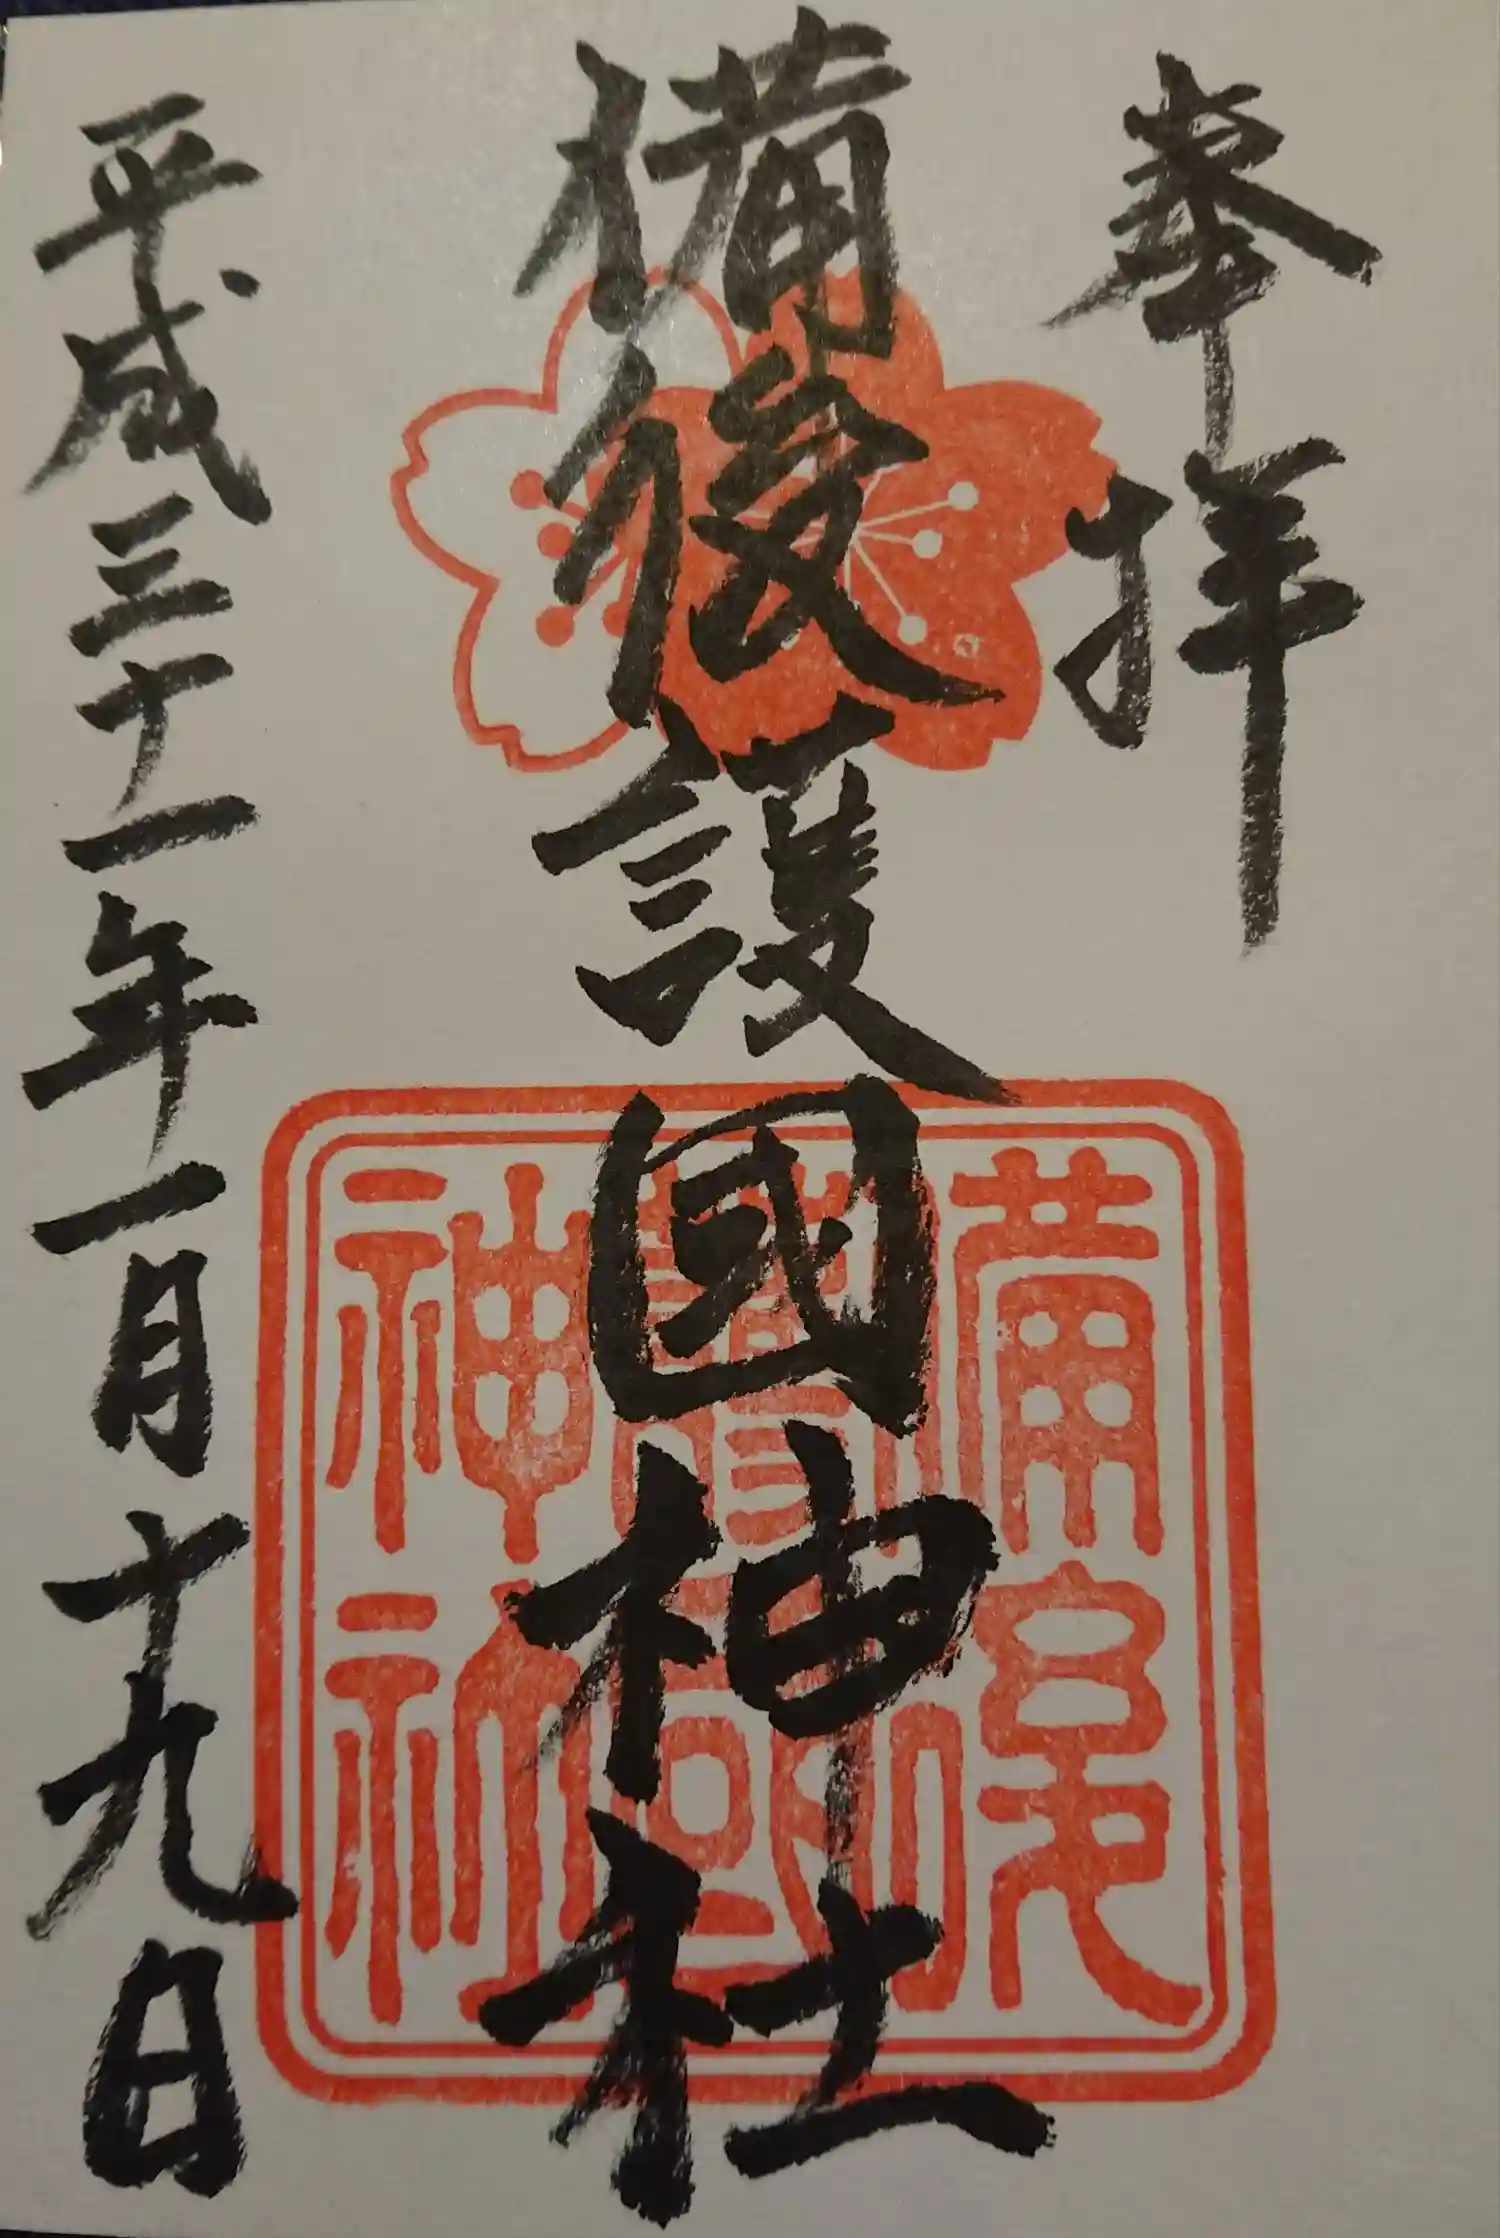 奉拝
備後護國神社
備後
護國
神社
平成三十一年一月十九日